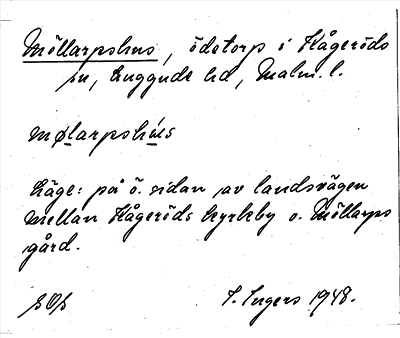 Möllarpshus, ödetorp i Kågeröds
sn, Luggude hd, Malm. l.
mølarpshús
Läge: på ö. sidan av landsvägen
mellan Kågeröds kyrkby o. Möllarps
gård.
I. Ingers 1948.